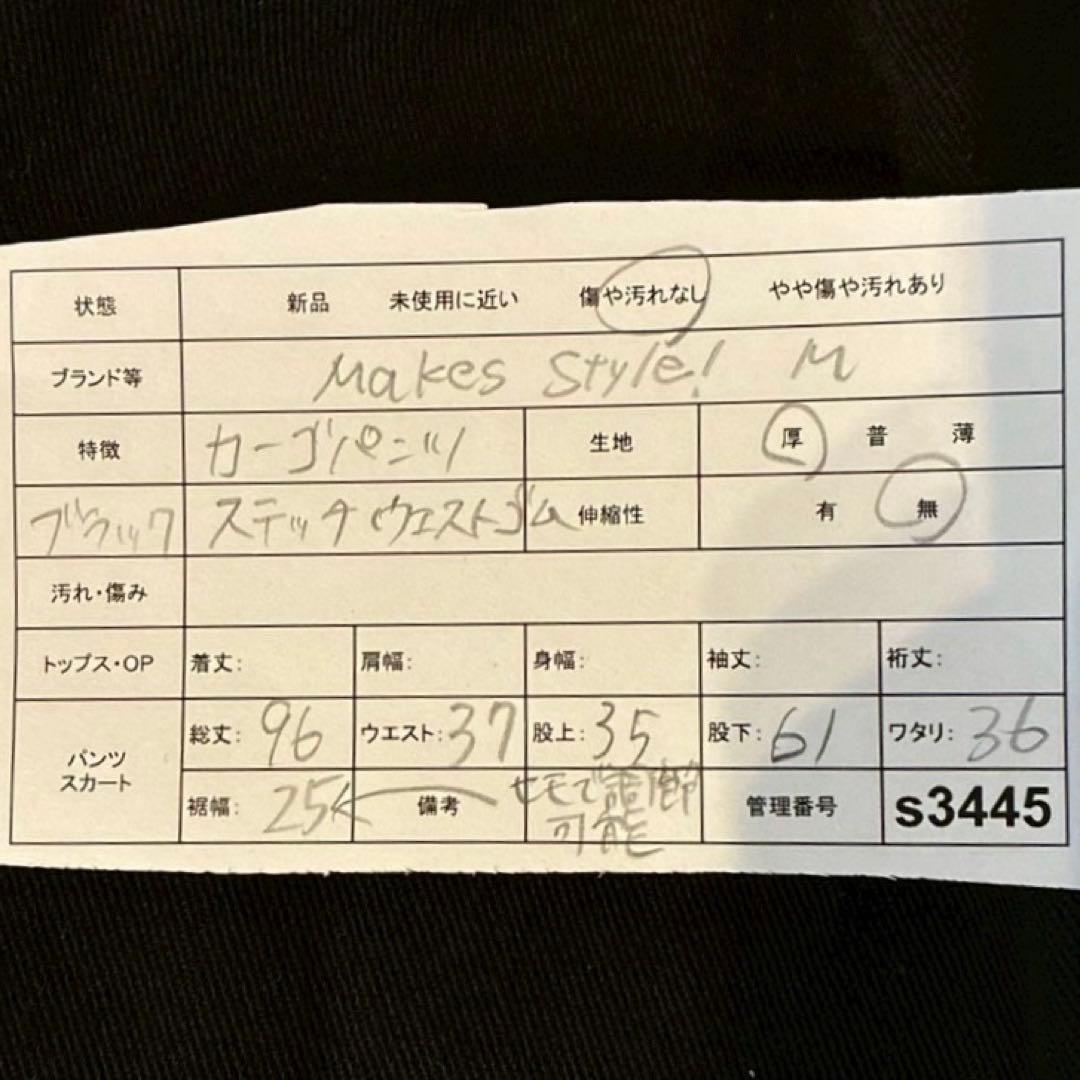 状態 新品 未使用に近い 傷や汚れなし やや傷や汚れあり
ブランド等 Makes Style! M
特徴 カーゴパンツ 生地 厚 普 薄
ブラック ステッチ ウエストゴム 伸縮性 有 無
汚れ・傷み
トップス・OP 着丈: 肩幅: 身幅: 袖丈: 裄丈:
パンツ スカート 総丈: 96 ウエスト: 37 股上: 35 股下: 61 ワタリ: 36
裾幅: 25 備考 ヒモで調節 管理番号 s3445
可能